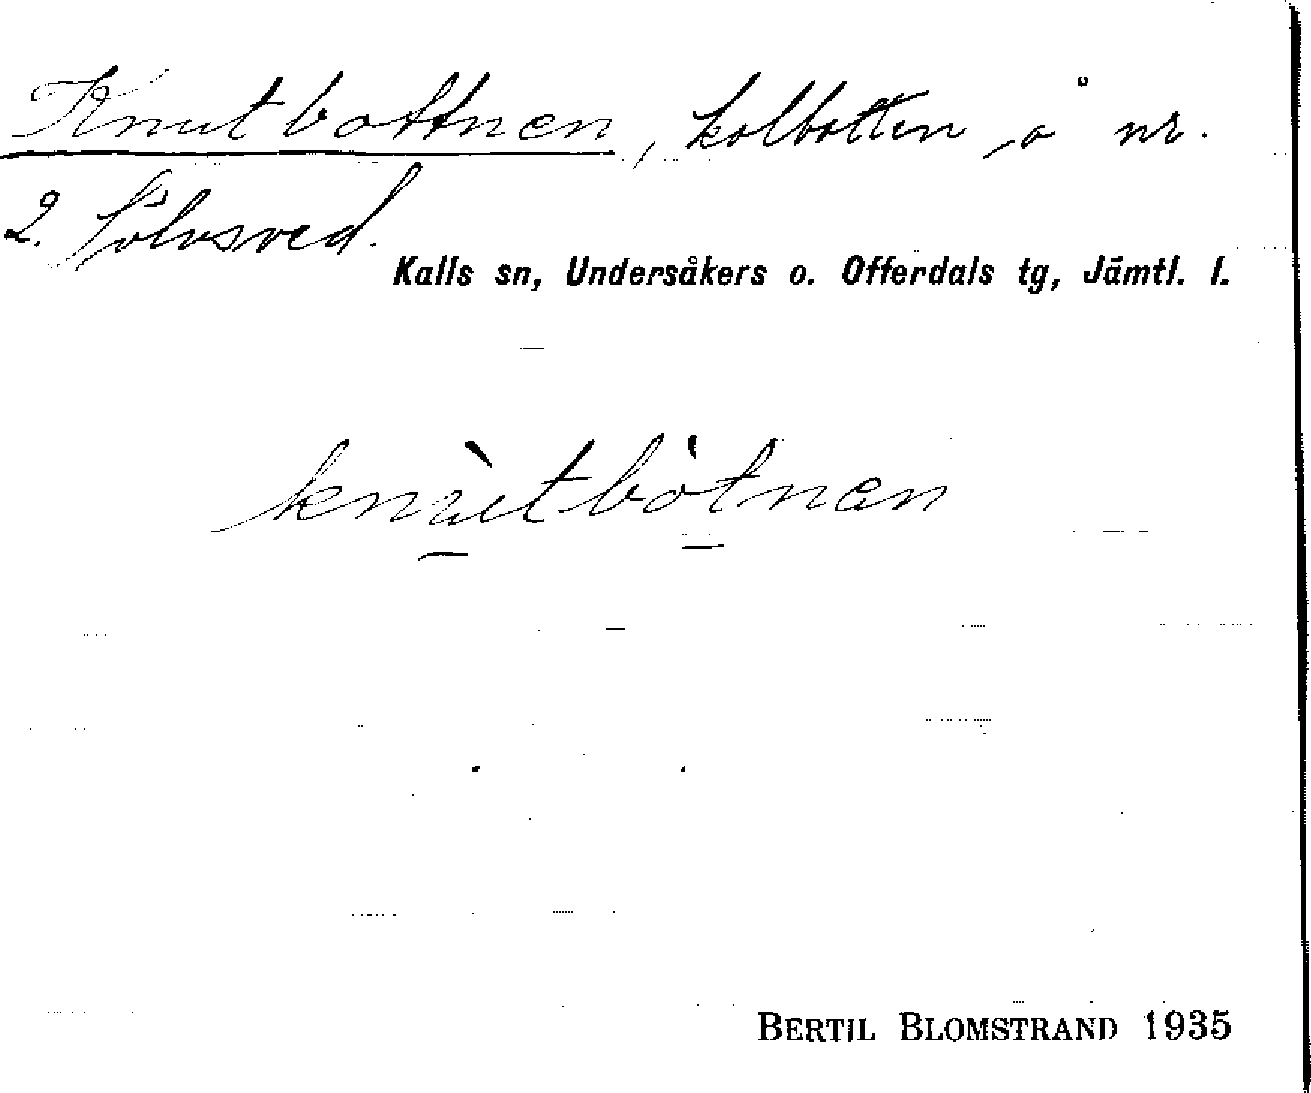 Knutbottnen, kolbotten å nr.
2. Sölvsved.
Kalls sn, Undersåkers o. Offerdals tg, Jämtl. l.
knùtbòtnen
BERTIL BLOMSTRAND 1935